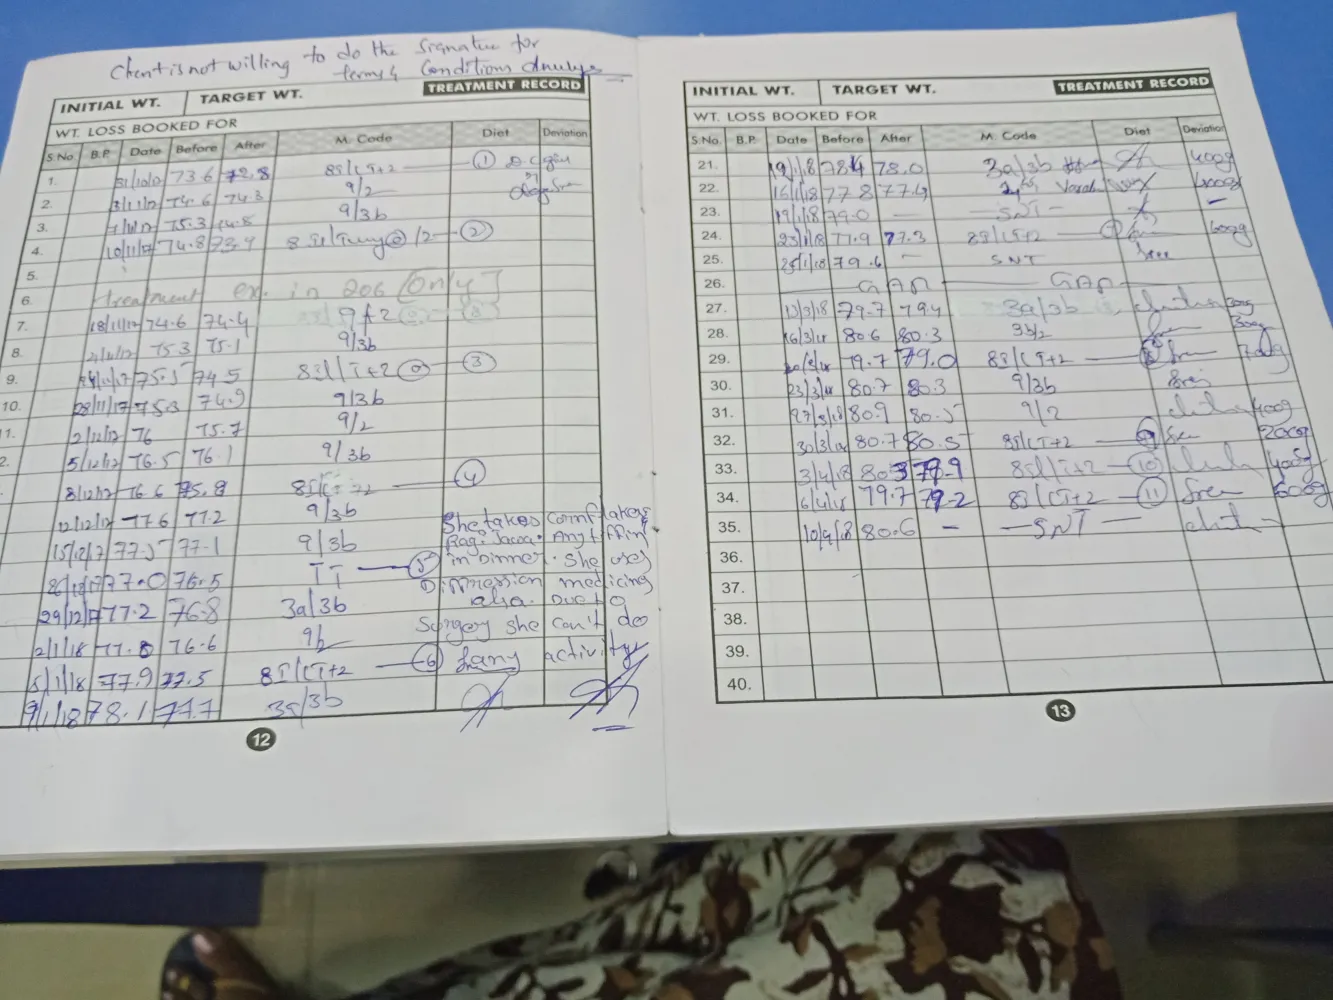 Client is not willing to do the Signature for
terms & Conditions
INITIAL WT. TARGET WT. TREATMENT RECORD
WT. LOSS BOOKED FOR
S.No. B.P. Date Before After M. Code Diet Deviation
1. 31/10/17 73.6 72.8 8SI/CT+2 — 1
2. 3/11/17 74.6 74.3 9/2
3. 7/11/17 75.3 74.8 9/3b
4. 10/11/17 74.8 73.9 /2 — 2
5.
6. treatment ex. in 206 [Only]
7. 18/11/17 74.6 74.4 9/2
8. 21/11/17 75.3 75.1 9/3b
9. 75.5 74.5 8SI/CT+2 — 3
10. 28/11/17 75.3 74.9 9/3b
11. 2/12/17 76 75.7 9/2
2. 5/12/17 76.5 76.1 9/3b
8/12/17 76.6 75.8 8SI/CT+2 — 4
12/12/17 77.6 77.2 9/3b She takes cornflakes
15/12/17 77.5 77.1 9/3b Ragi Javaa. Any tiffin
26/12/17 77.0 76.5 TT — 5 in Dinner. She uses
29/12/17 77.2 76.8 3a/3b Dippression medicing also. Due to
2/1/18 77.8 76.6 9/2 Surgery she can't do
5/1/18 77.9 77.5 8SI/CT+2 — 6 any activity
9/1/18 78.1 77.7 3a/3b
12
INITIAL WT. TARGET WT. TREATMENT RECORD
WT. LOSS BOOKED FOR
S.No. B.P. Date Before After M. Code Diet Deviation
21. 12/1/18 78.4 78.0 3a/3b 400g
22. 16/1/18 77.8 77.4 400g
23. 19/1/18 79.0 — — SNT — —
24. 23/1/18 77.9 77.3 8SI/CT+2 — 7 600g
25. 25/1/18 79.6 — SNT
26. — GAP — GAP —
27. 13/3/18 79.7 79.4 3a/3b 300g
28. 16/3/18 80.6 80.3 3b/2 300g
29. 20/3/18 79.7 79.0 8SI/CT+2 — 8 700g
30. 23/3/18 80.7 80.3 9/3b
31. 27/3/18 80.9 80.5 9/2 400g
32. 30/3/18 80.7 80.5 8SI/CT+2 — 9 200g
33. 3/4/18 80.3 79.9 8SI/CT+2 — 10 400g
34. 6/4/18 79.7 79.2 8SI/CT+2 — 11 500g
35. 10/4/18 80.6 — — SNT —
36.
37.
38.
39.
40.
13